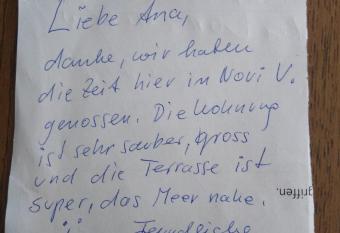 Liebe Ana,
danke, wir haben
die Zeit hier in Novi V.
genossen. Die Wohnung
ist sehr sauber, gross
und die Terrasse ist
super, das Meer nahe.
griffen.